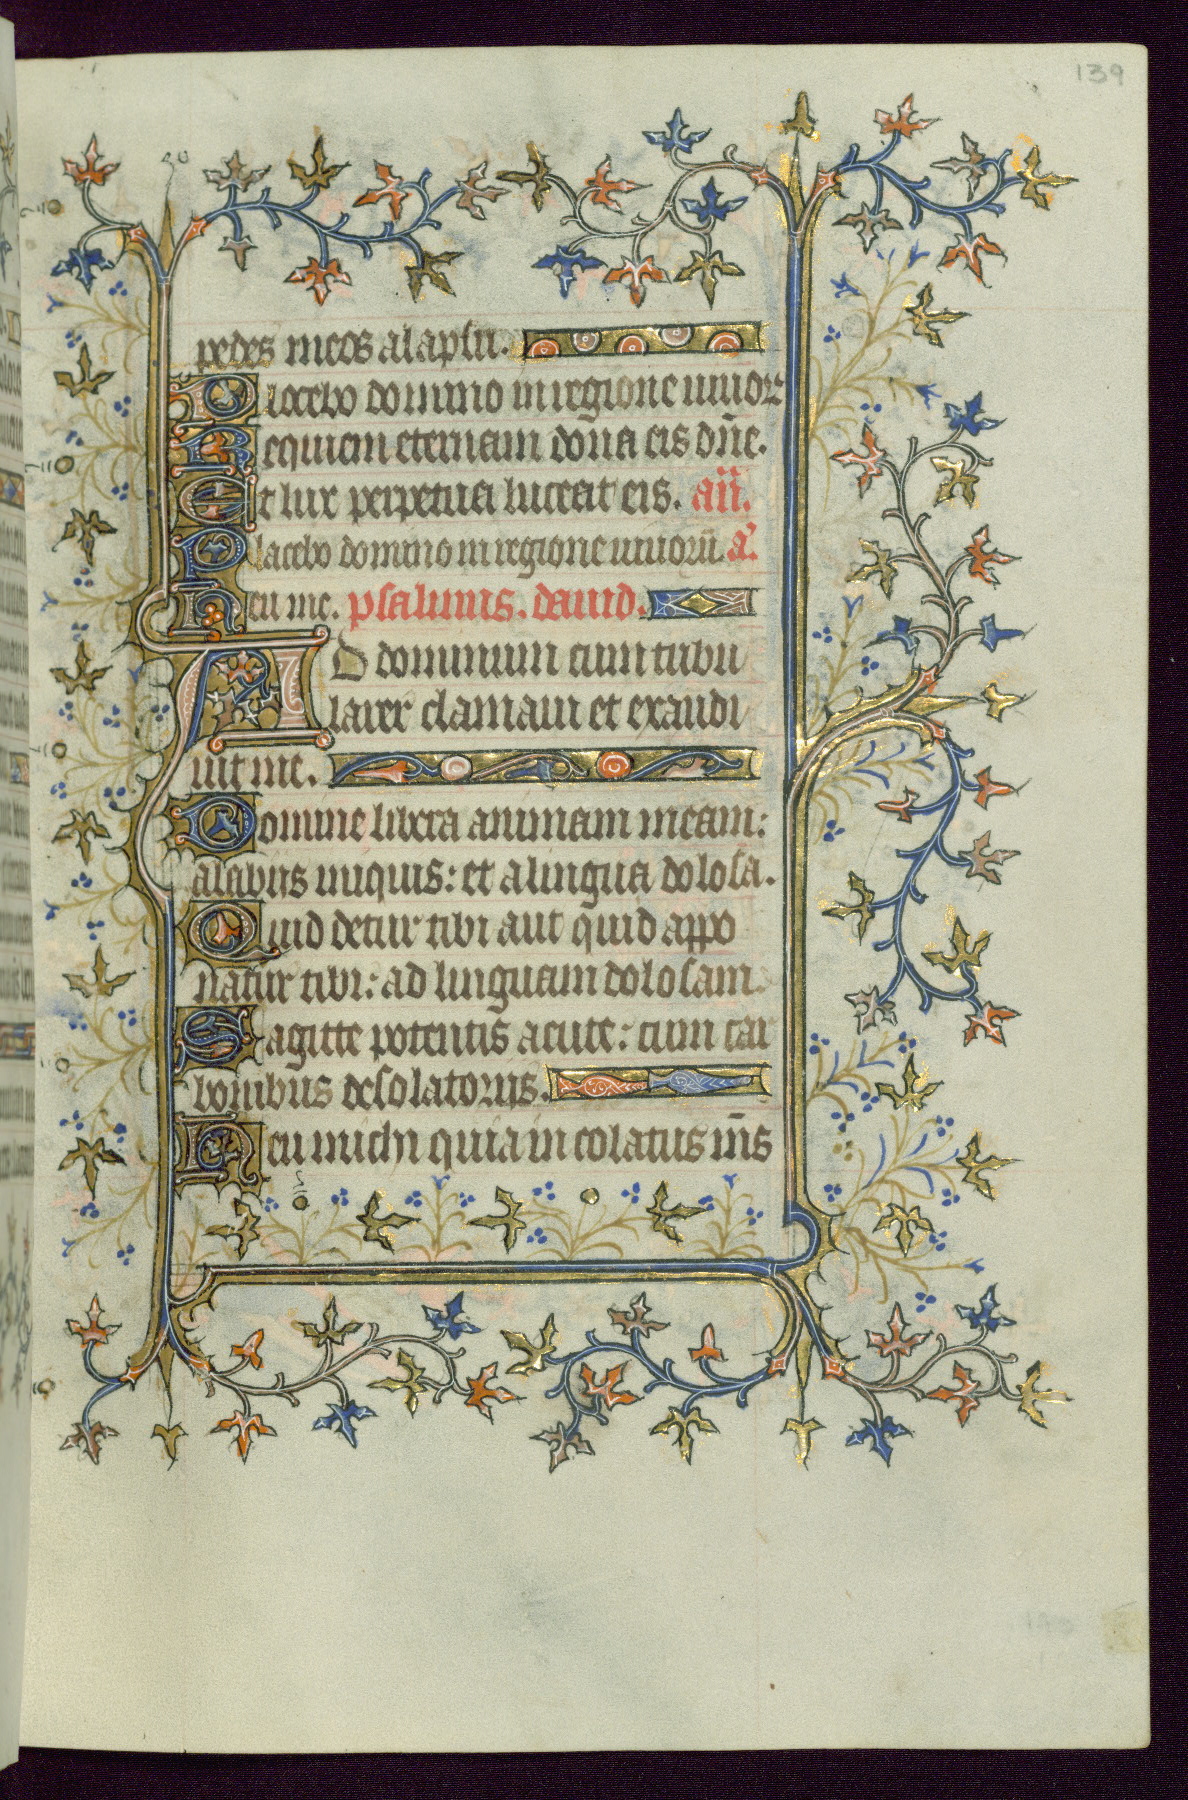 139
pedes meos a lapsu.
Placebo domino in regione viuor
Requiem eternam dona eis dn̄e.
Et lux perpetua luceat eis. an̄.
Placebo domino in regione viuorū. a.
Heu me. psalmus. dauid.
Ad dominum cum tribu
larer clamaui et exaudi
uit me.
Domine libera animam meam:
a labiis iniquis: et a lingua dolosa.
Quid detur tibi aut quid appo
natur tibi: ad linguam dolosam.
Sagitte potentis acute: cum car
bonibus desolatoriis.
Heu michi quia incolatus m̄s